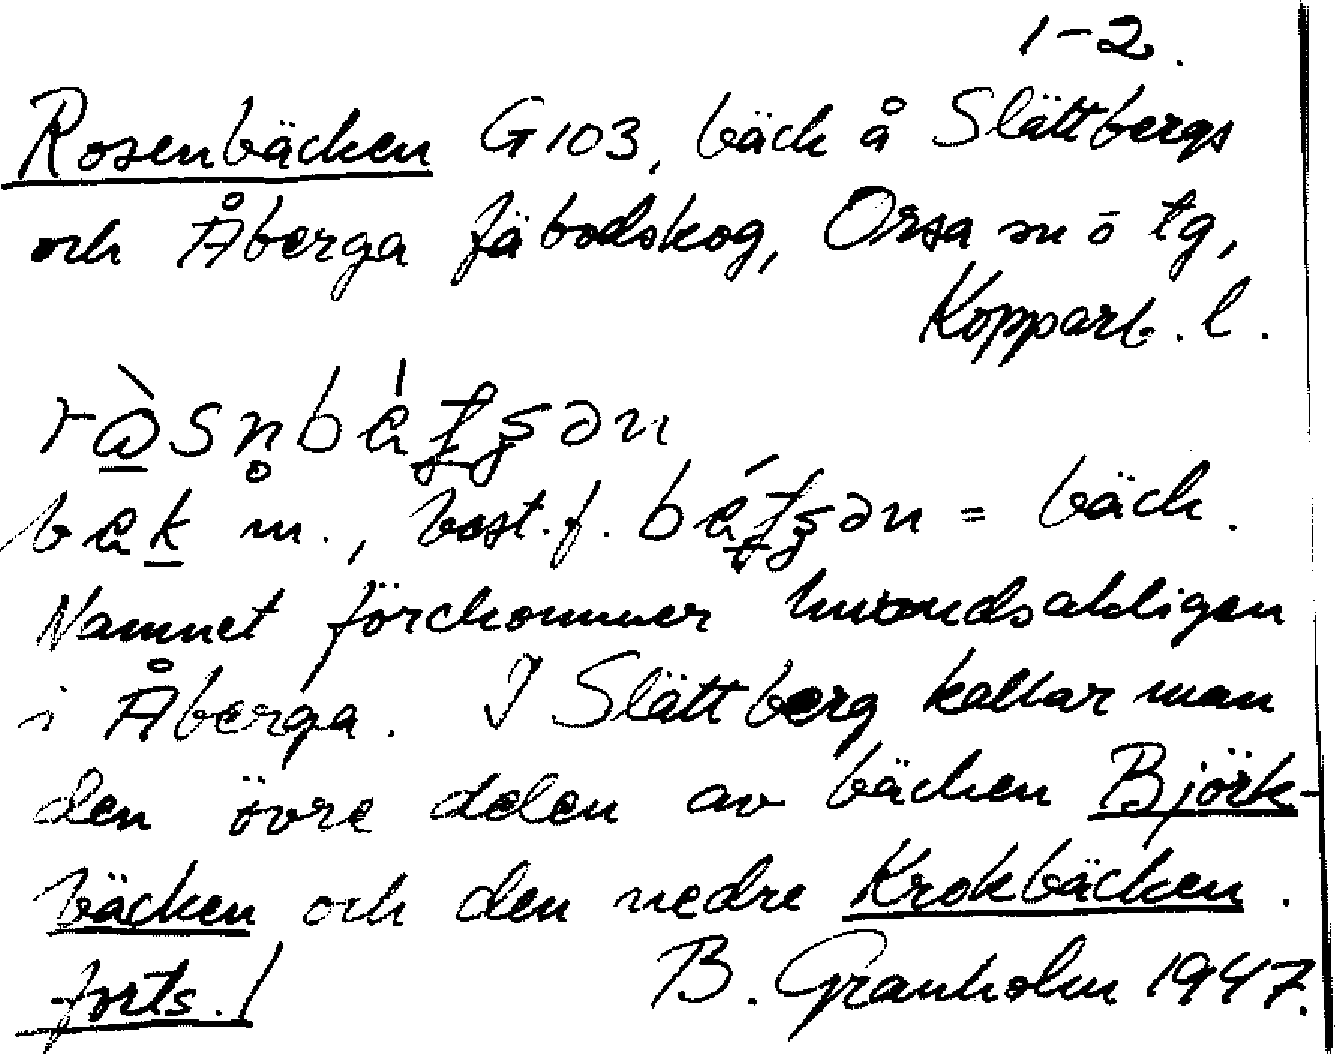 1-2.
Rosenbäcken G103, bäck å Slättbergs
och Åberga fäbodskog, Orsa sn o tg,
Kopparb. l.
m., best. f. = bäck.
Namnet förekommer huvudsakligen
i Åberga. I Slättberg kallar man
den övre delen av bäcken Björk-
bäcken och den nedre Krokbäcken.
forts. /
B. Granholm 1947.